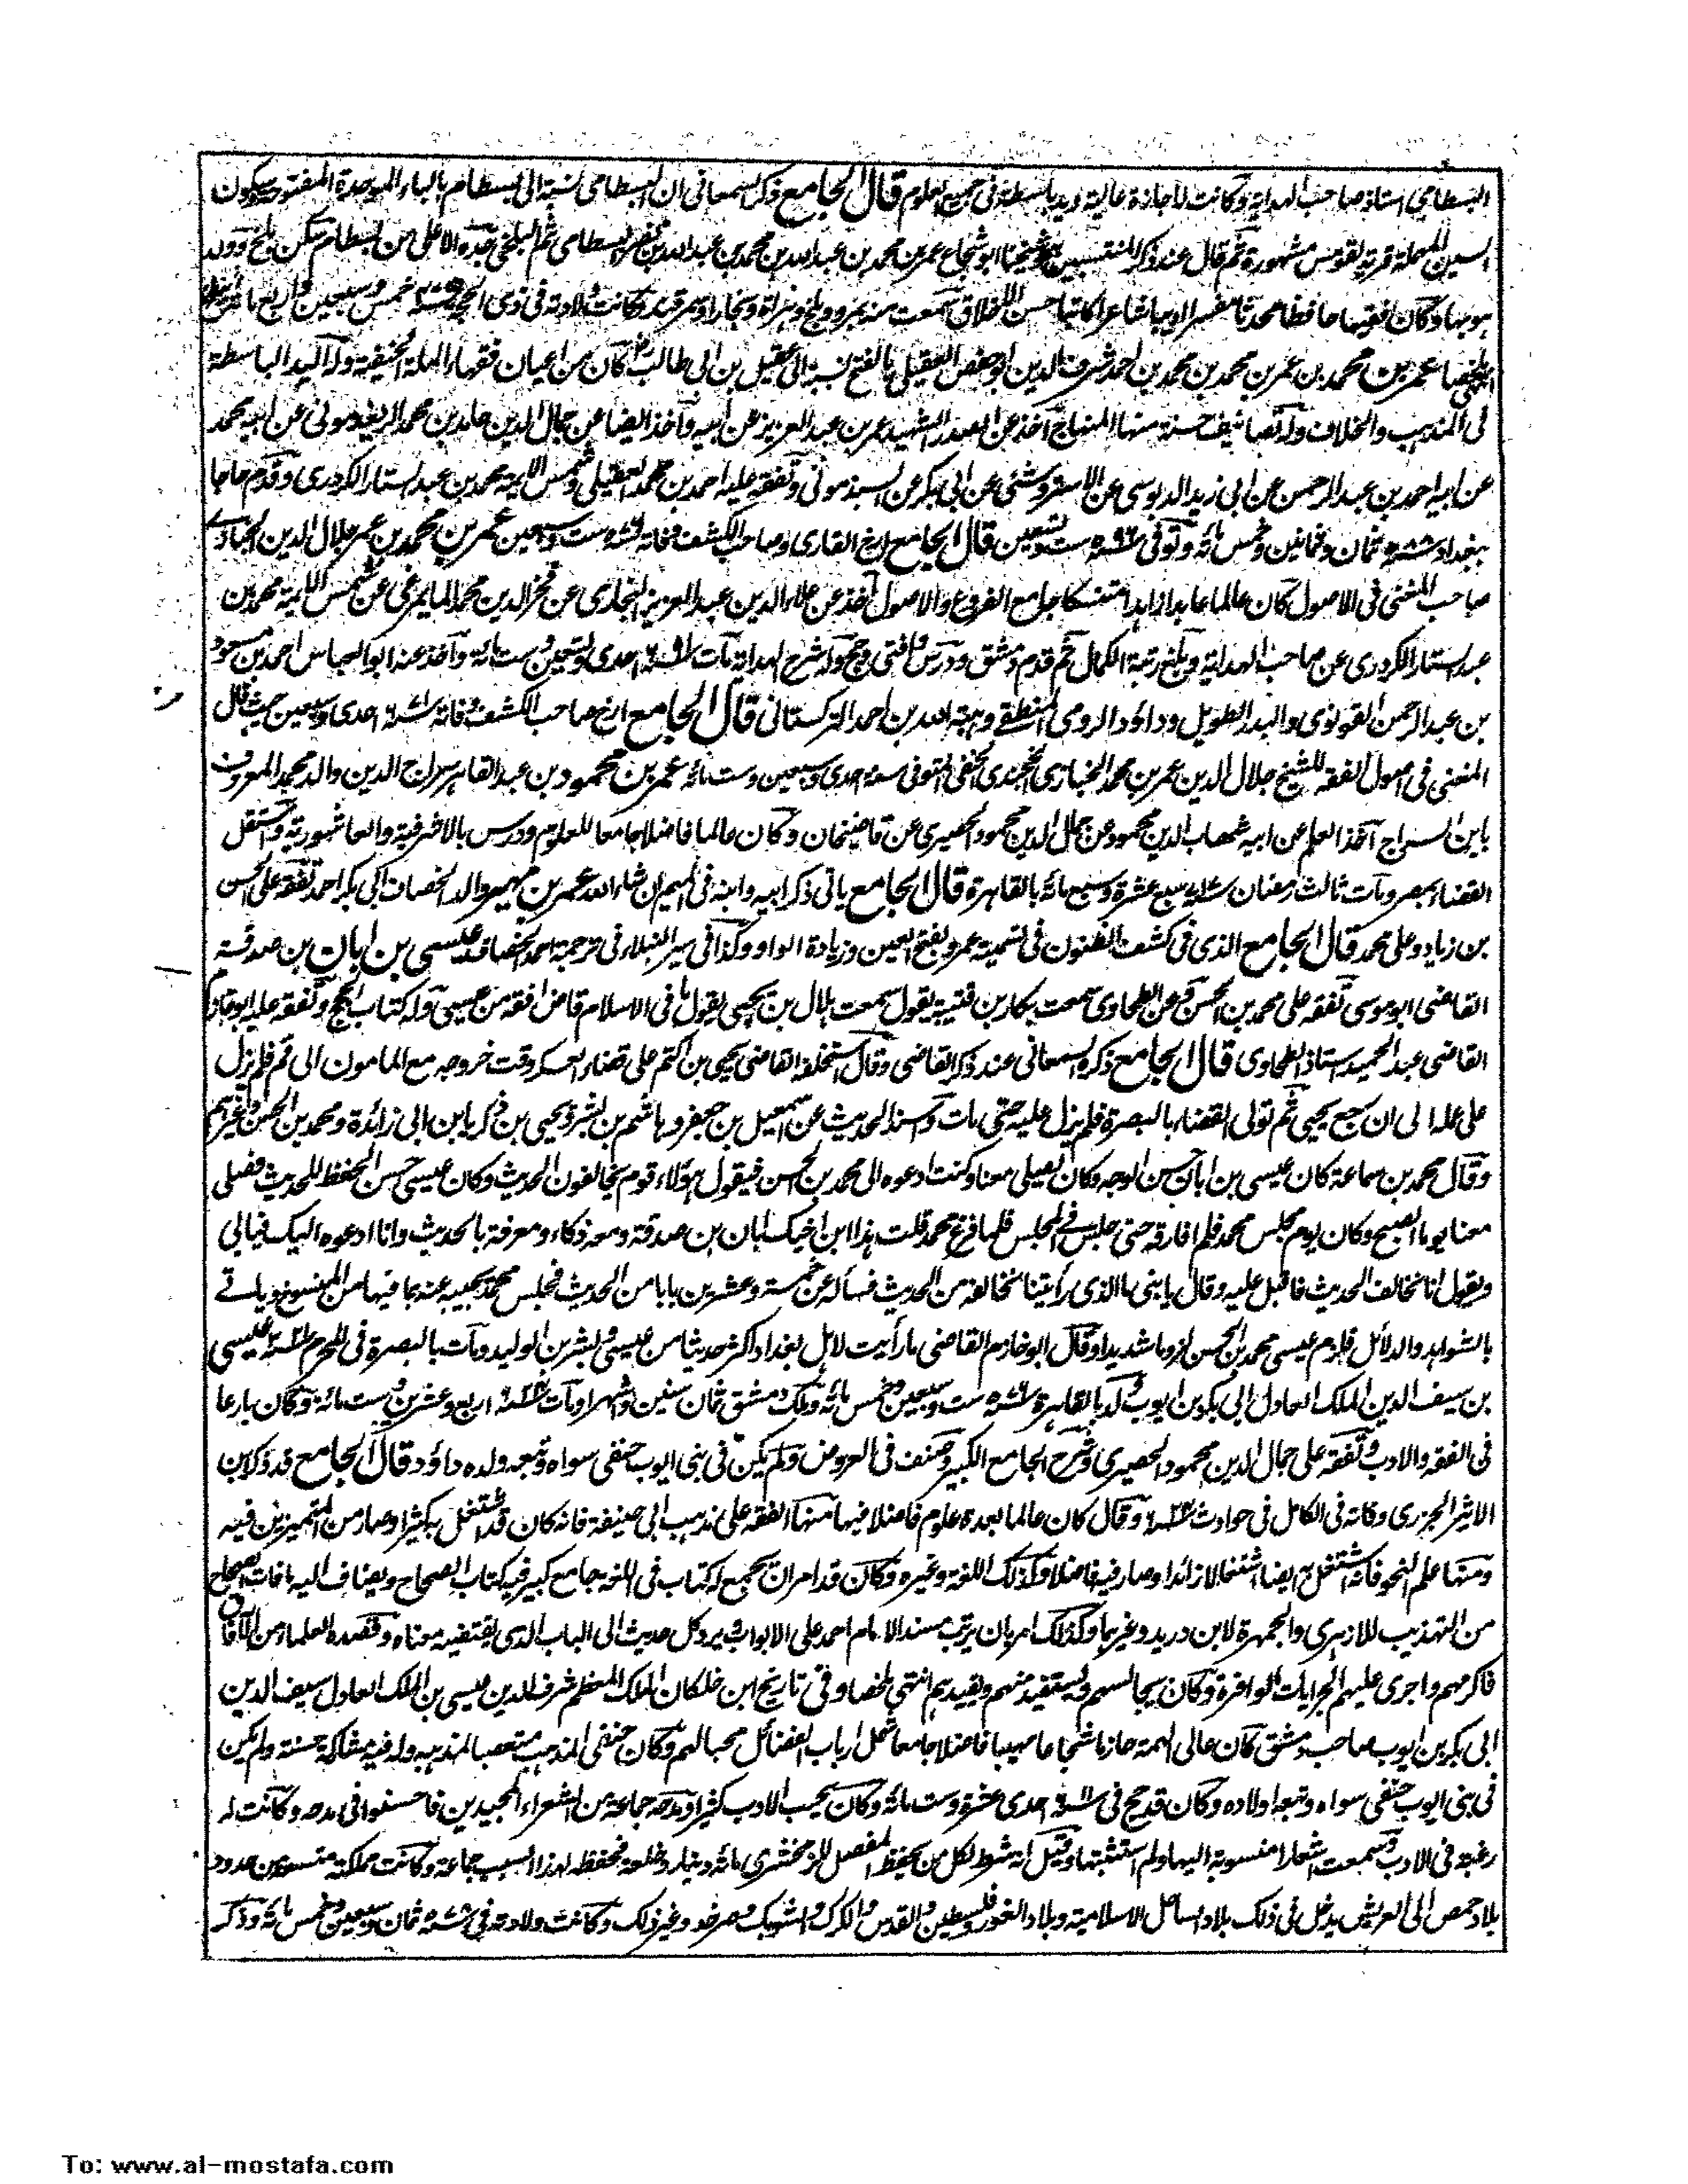 البسطامي استاذ صاحب الهداية وكانت له اجازة عالية ويد باسطة في جميع العلوم قال الجامع ذكر السمعاني ان البسطامي نسبة الى بسطام بالباء الموحدة المفتوحة وسكون
السين المهملة قرية بقومس مشهورة ثم قال عند ذكر المنتسبين شيخنا ابو شجاع عمر بن محمد بن عبد الله بن محمد بن عبد الله بن نصر البسطامي ثم البلخي جده الاعلى من بسطام سكن بلخ وولد
هو بها وكان فقيها حافظا محدثا مفسرا اديبا شاعرا كاتبا حسن الاخلاق سمعت منه بمرو وبلخ وهراة وبخارا وسمرقند وكانت ولادته في ذي الحجة سنة خمس وسبعين واربع مائة انتهى
ملخصا عمر بن محمد بن عمر بن محمد بن محمد بن احمد شرف الدين ابو حفص العقيلي بالفتح نسبة الى عقيل بن ابي طالب كان من اعيان فقهاء الملة الحنيفية وله اليد الباسطة
في المذهب والخلاف وله تصانيف حسنة منها المنهاج اخذ عن الصدر الشهيد عمر بن عبد العزيز عن ابيه واخذ ايضا عن جمال الدين حامد بن محمد الريغدموني عن ابيه محمد
عن ابيه احمد بن عبد الرحمن عن ابي زيد الدبوسي عن الاستروشني عن ابي بكر عن السبذموني وتفقه عليه احمد بن محمد العقيلي وشمس الايمة محمد بن عبد الستار الكردري وقدم حاجا
ببغداد سنة ٥٨٨ ثمان وثمانين وخمس مائة وتوفي سنة ٥٩٦ ست وتسعين قال الجامع ارخ القاري وصاحب الكشف وفاته سنة ٥٧٦ ست وسبعين عمر بن محمد بن عمر جلال الدين الخبازي
صاحب المغني في الاصول كان عالما عابدا زاهدا متنسكا جامع الفروع والاصول اخذ عن علاء الدين عبد العزيز البخاري عن فخر الدين محمد المايمرغي عن شمس الايمة محمد بن
عبد الستار الكردري عن صاحب الهداية وبلغ رتبة الكمال ثم قدم دمشق ودرس وافتى وحج وله شرح الهداية مات سنة ٦٩١ احدى وتسعين وست مائة واخذ عنه ابو العباس احمد بن مسعود
بن عبد الرحمن القونوي والبدر الطويل وداؤد الرومي المنطقي وهبة الله بن احمد التركستاني قال الجامع ارخ صاحب الكشف وفاته سنة ٦٧١ احدى وسبعين حيث قال
المغني في اصول الفقه للشيخ جلال الدين عمر بن محمد الخبازي الخجندي الحنفي المتوفى سنة احدى وسبعين وست مائة عمر بن محمود بن عبد القاهر سراج الدين والد محمد المعروف
بابن السراج اخذ العلم عن ابيه شهاب الدين محمود عن جمال الدين محمود الحصيري عن قاضيخان وكان عالما فاضلا جامعا للعلوم ودرس بالاشرفية والعاشورية واستقل
القضاء بمصر ومات ثالث رمضان سنة ٧١٧ سبع عشرة وسبع مائة بالقاهرة قال الجامع ياتي ذكر ابيه وابنه في الميم ان شاء الله عمر بن مهير والد الخصاف ابي بكر احمد تفقه على الحسن
بن زياد وعلى محمد قال الجامع الذي في كشف الظنون في تسميته عمرو بفتح العين وزيادة الواو وكذا في سير النبلاء في ترجمة احمد الخصاف عيسى بن ابان بن صدقة
القاضي ابو موسى تفقه على محمد بن الحسن وعن الطحاوي سمعت بكار بن قتيبة يقول سمعت هلال بن يحيى يقول ما في الاسلام قاض افقه من عيسى وله كتاب الحج وتفقه عليه ابو خازم
القاضي عبد الحميد استاذ الطحاوي قال الجامع ذكره السمعاني عند ذكر القاضي وقال استخلفه القاضي يحيى بن اكثم على قضاء العسكر وقت خروجه مع المامون الى فم فلم يزل
على عمله الى ان رجع يحيى ثم تولى القضاء بالبصرة فلم يزل عليه حتى مات واسند الحديث عن اسمعيل بن جعفر وهاشم بن بشر ويحيى بن زكريا بن ابي زائدة ومحمد بن الحسن وغيرهم
وقال محمد بن سماعة كان عيسى بن ابان حسن الوجه وكان يصلي معنا وكنت ادعوه الى محمد بن الحسن فيقول هؤلاء قوم يخالفون الحديث وكان عيسى حسن الحفظ للحديث فصلى
معنا يوما الصبح وكان يوم مجلس محمد فلم افارقه حتى جلس في المجلس فلما فرغ محمد قلت هذا ابن اخيك ابان بن صدقة ومعه ذكاء ومعرفة بالحديث وانا ادعوه اليك فيابي
ويقول انا نخالف الحديث فاقبل عليه وقال يا بني ما الذي رأيتنا نخالفه من الحديث فسأله عن خمسة وعشرين بابا من الحديث فجلس محمد يجيبه عنه بما فيها من المنسوخ وياتي
بالشواهد والدلائل فلزم عيسى محمد بن الحسن لزوما شديدا وقال ابو خازم القاضي ما رأيت لاهل بغداد اكثر حديثا من عيسى وبشر بن الوليد ومات بالبصرة في المحرم سنة ٢٢١ عيسى
بن سيف الدين الملك العادل ابي بكر بن ايوب ولد بالقاهرة سنة ٥٧٦ ست وسبعين وخمس مائة وملك دمشق ثمان سنين واشهرا ومات سنة ٦٢٤ اربع وعشرين وست مائة وكان بارعا
في الفقه والادب وتفقه على جمال الدين محمود الحصيري وشرح الجامع الكبير وصنف في العروض ولم يكن في بني ايوب حنفي سواه وتبعه ولده داؤد قال الجامع قد ذكر ابن
الاثير الجزري وفاته في الكامل في حوادث سنة ٦٢٤ وقال كان عالما بعدة علوم فاضلا فيها منها الفقه على مذهب ابي حنيفة فانه كان قد اشتغل به كثيرا وصار من المتميزين فيه
ومنها علم النحو فانه اشتغل به ايضا اشتغالا زائدا وصار فيه فاضلا وكذلك اللغة وغيره وكان قد امر ان يجمع له كتاب في اللغة جامع كبير فيه كتاب الصحاح ويضاف اليه ما فات الصحاح
من التهذيب للازهري والجمهرة لابن دريد وغيرهما وكذلك امر بان يرتب مسند الامام احمد على الابواب ويرد كل حديث الى الباب الذي يقتضيه معناه وقصده العلماء من الآفاق
فاكرمهم واجرى عليهم الجرايات الوافرة وكان يجالسهم ويستفيد منهم ويفيدهم انتهى ملخصا وفي تاريخ ابن خلكان الملك المعظم شرف الدين عيسى بن الملك العادل سيف الدين
ابي بكر بن ايوب صاحب دمشق كان عالي الهمة حازما شجاعا مهيبا فاضلا جامعا شمل ارباب الفضائل محبا لهم وكان حنفي المذهب متعصبا لمذهبه وله فيه مشاركة حسنة ولم يكن
في بني ايوب حنفي سواه وتبعه اولاده وكان قد حج في سنة ٦١١ احدى عشرة وست مائة وكان يحب الادب كثيرا ومدحه جماعة من الشعراء المجيدين فاحسنوا في مدحه وكانت له
رغبة في الادب وسمعت اشعارا منسوبة اليه ولم استثبتها وقيل انه شرط لكل من يحفظ المفصل للزمخشري مائة دينار وخلعة فحفظه لهذا السبب جماعة وكانت مملكته متسعة من حدود
بلاد حمص الى العريش يدخل في ذلك بلاد الساحل الاسلامية وبلاد الغور وفلسطين والقدس والكرك والشوبك وصرخد وغير ذلك وكانت ولادته في سنة ٥٧٨ ثمان وسبعين وخمس مائة وذكر
To: www.al-mostafa.com